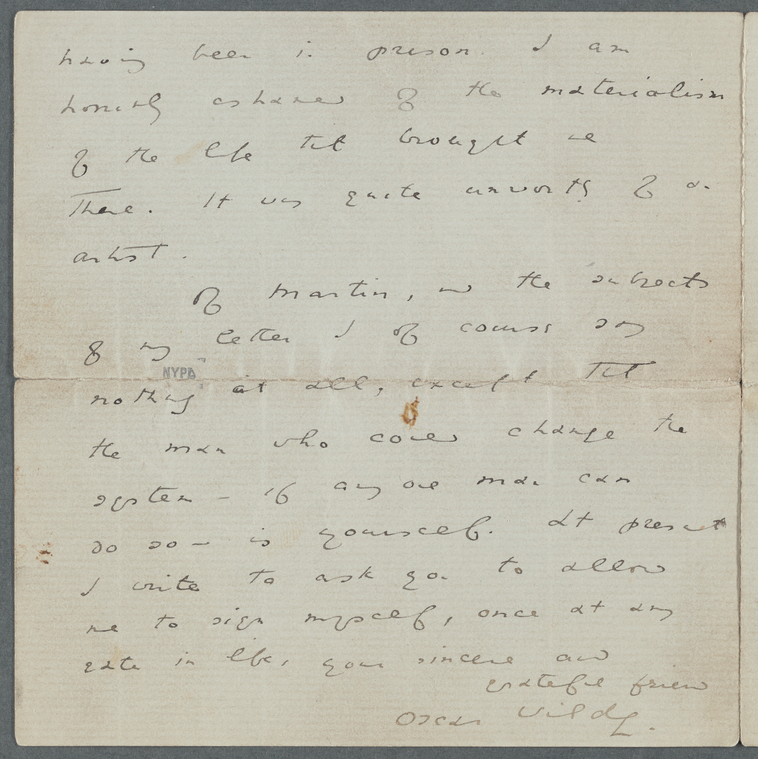 having been in prison. I am
honestly ashamed of the materialism
of the life that brought me
there. It was quite unworthy of an
artist.
Of Martin, and the subjects
of my letter I of course say
NYPL
nothing at all, except that
the man who could change the
system – if any one man can
do so – is yourself. At present
I write to ask you to allow
me to sign myself, once at any
rate in life, your sincere and
grateful friend
Oscar Wilde.